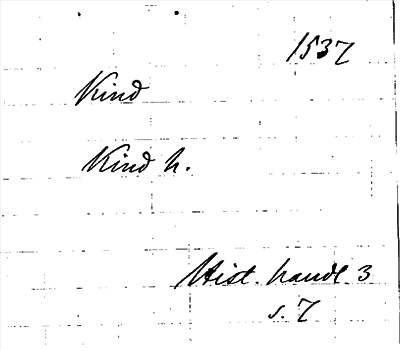 1537
Kind
Kind h.
Hist. handl 3
s. 7